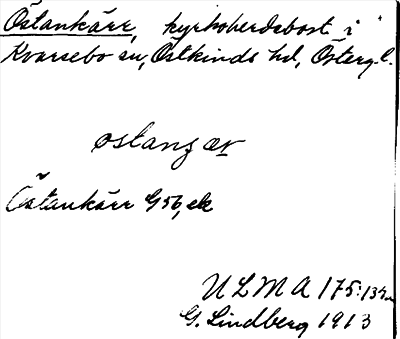 Östankärr, kyrkoherdebost. i
Kvarsebo sn, Östkinds hd, Österg. l.
ostanɡ ær
Östankärr G56, ek
ULMA 175:13
G. Lindberg 1913